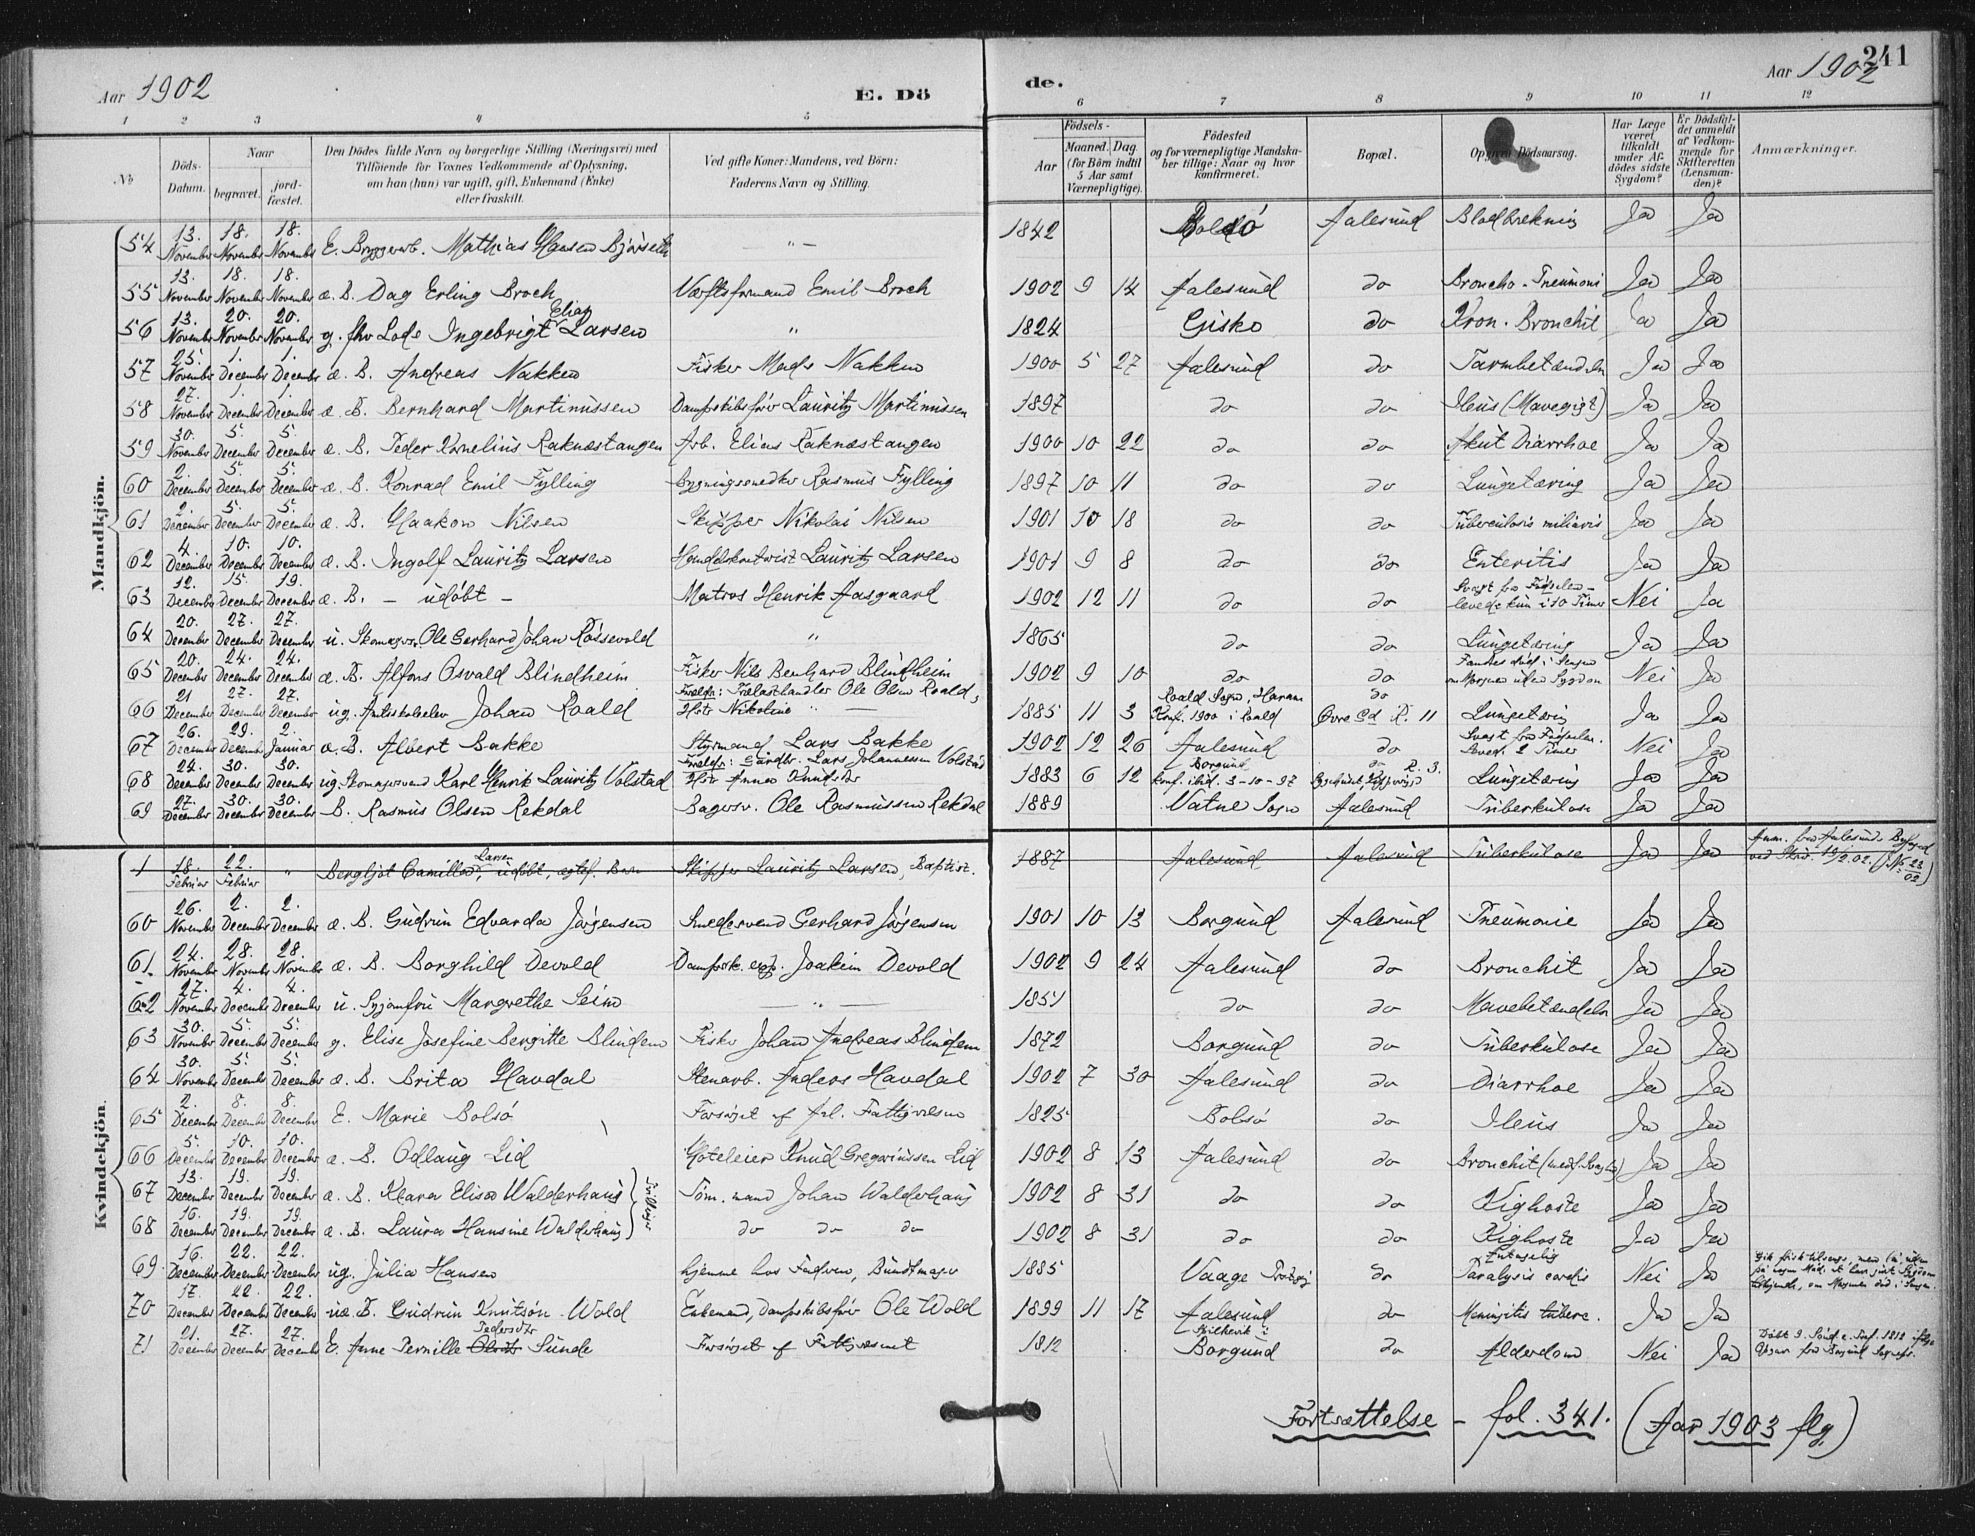 Aar 1902 E. Dö
de. Aar 1902 241
1 2 3 4 5 6 7 8 9 10 11 12
No
Döds-Datum.
Naar begravet. jordfæstet.
Den Dödes fulde Navn og borgerlige Stilling (Næringsvei) med
Tilföiende for Voxnes Vedkommende af Oplysning,
om han (hun) var ugift, gift, Enkemand (Enke)
eller fraskilt.
Ved gifte Koner: Mandens, ved Börn:
Faderens Navn og Stilling.
Födsels-
Aar Maaned. Dag
(for Börn indtil
5 Aar samt
Værnepligtige).
Födested
og for værnepligtige Mandska-
ber tillige: Naar og hvor
konfirmeret.
Bopæl.
Opgiven Dödsaarsag.
Har Læge været tilkaldt under Afdödes sidste Sygdom?
Er Dödsfaldet anmeldt af Vedkommende for Skifteretten (Lensmanden)?
Anmærkninger.
Mandkjön.
54 13. November 18. November 18. November E. Mathias Hansen Bjørseth — " — 1842 Bolsö Aalesund Blodbrekning Ja Ja
55 13. November 18. November 18. November æ. B. Dag Erling Broch Værftsformand Emil Broch 1902 9 14 Aalesund do Broncho-Pneumoni Ja Ja
56 13. November 20. November 20. November g. fhv Lods Ingebrigt Elias Larsen " 1824 Giske do Kron. Bronchit Ja Ja
57 25. November 1. December 1. December æ. B. Andreas Nakken Fisker Mads Nakken 1900 5 27 Aalesund do Tarmbetændelse Ja Ja
58 27. November 1. December 1. December æ. B. Bernhard Martinussen Dampskibsfører Lauritz Martinussen 1897 do do Ileus (Mavegigt) Ja Ja
59 30. November 5. December 5. December æ. B. Peder Kornelius Raknæstangen Arb. Elias Raknæstangen 1900 10 22 do do Akut Diarrhoe Ja Ja
60 2. December 5. December 5. December æ. B. Konrad Emil Fylling Bygningssnedker Rasmus Fylling 1897 10 11 do do Lungetæring Ja Ja
61 2. December 5. December 5. December æ. B. Haakon Nilsen Skipper Nikolai Nilsen 1901 10 18 do do Tuberculosis miliaris Ja Ja
62 4. December 10. December 10. December æ. B. Ingolf Lauritz Larsen Lauritz Larsen 1901 9 8 do do Enteritis Ja Ja
63 12. December 15 December 19. December æ. B. — udøbt — Matros Henrik Aasgaard 1902 12 11 do do Svagt fra Fødselen – levede kun i 10 Timer Nei Ja
64 20. December 27. December 27. December u. Skomagersv. Ole Gerhard Johan Røssevold " 1865 do do Lungetæring Ja Ja
65 20. December 24. December 24. December æ. B. Alfons Osvald Blindheim Fisker Nils Benhard Blindheim 1902 9 10 do do Fandtes død i Sengen om Morgenen uden Sygdom Nei Ja
66 21 December 27. December 27. December ug. Amtsskoleelev Johan Roald Forældr: Trælasthandler Ole Olsen Roald, Hstr Nikoline 1885 11 3 Roald Sogn, Haram Konf. 1900 i Roald do Øvre Gd R. 11 Lungetæring Ja Ja
67 26. December 29. December 2. Januar æ. B. Albert Bakke Styrmand Lars Bakke 1902 12 26 Aalesund do Svagt fra Fødselen. Leved. 2 Timer Nei Ja
68 24. December 30. December 30. December ug. Skomagersvend Karl Henrik Lauritz Volstad Forældr: Gårdbr. Lars Johannessen Volstad Hstr Anne Knudsdtr 1883 6 12 Borgund konf. ibid. 3-10-97 do R. 3. Lungetæring Ja Ja
69 27. December 30. December 30. December B. Rasmus Olsen Rekdal Bagersv. Ole Rasmussen Rekdal 1889 Vatne Sogn Aalesund Tuberkulose Ja Ja
Kvindekjön.
1 18. Februar 22. Februar " Bergljot Camilla Larsen, udøbt, ægtef. Barn Skipper Lauritz Larsen, Baptist. 1887 Aalesund Aalesund Tuberkulose Ja Ja Anm. fra Aalesunds Byfoged ved Skr. 19/2.02. (J. No 23/02)
60 26. November 2. December 2. December æ. B. Gudrun Edvarda Jørgensen Smedesvend Gerhard Jørgensen 1901 10 13 Borgund Aalesund Pneumonie Ja Ja
61. 24. November 28. November 28. November æ. B. Borghild Devold Dampsk.exp. Joakim Devold 1902 9 24 Aalesund do Bronchit Ja Ja
62 27. November 4. December 4. December u. Syjomfru Margrethe Seim — " — 1851 do do Mavebetændelse Ja Ja
63 30. November 5. December 5. December g. Elise Josefine Bergitte Blindem Fisker Johan Andreas Blindem 1872 Borgund do Tuberkulose Ja Ja
64 30. November 5 December 5 December æ. B. Brita Havdal Stenarb. Anders Havdal 1902 7 30 Aalesund do Diarrhoe Ja Ja
65 2. December 8. December 8. December E. Marie Bolsö Forsørget af Aal. Fattigvæsen 1825 Bolsö do Ileus Ja Ja
66 5. December 10. December 10. December æ. B. Odlaug Lid Hoteleier Knud Gregoriussen Lid 1902 8 13 Aalesund do Bronchit Ja Ja
67 13. December 19. December 19. December æ. B. Klara Elisa Walderhaug Tvillinger Tømmermand Johan Walderhaug 1902 8 31 do do Kighoste Ja Ja
68 16. December 19. December 19. December æ. B. Laura Hansine Walderhaug do do do 1902 8 31 do do Kighoste Ja Ja
69 16. December 22. December 22. December ug. Julia Hansen hjemme hos Fadren, Bundtmager 1885 Vaage do Antagelig Paralysis cordis Nei Ja
70 17. December 22. December 22. December uæ. B. Gudrun Knutson Wold Enkemand, Dampskibsfører Ole Wold 1899 11 17 Aalesund do Meningitis tuberc. Ja Ja
71 21. December 27. December 27. December E. Anne Pernille Pedersdtr Olsdtr Sunde Forsørget af Fattigvæsenet 1812 Borgund do Alderdom Nei Ja
Fortsættelse – fol. 341. (Aar 1903 flg.)